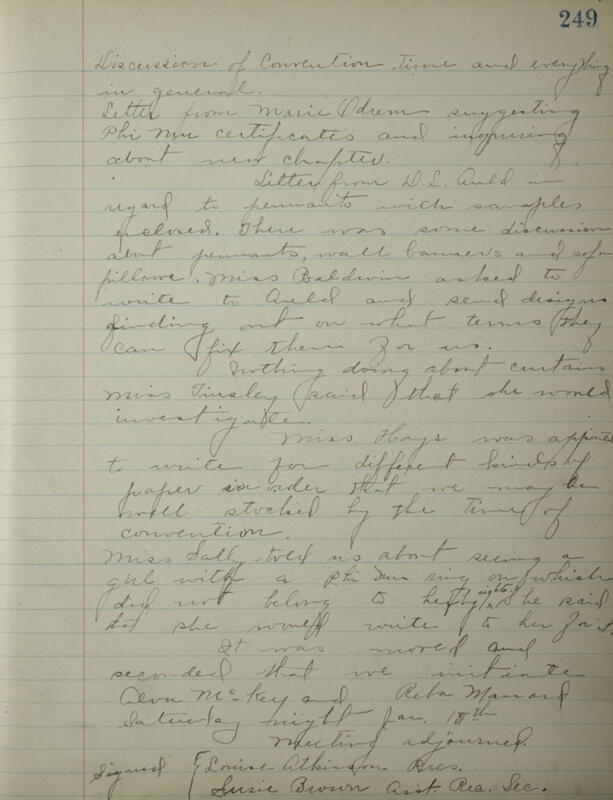 249
Discussion of Convention time and everything
in general.
Letter from Marie Odum suggesting
Phi Mu certificates and inquiring
about new chapter.
Letter from D. L. Auld in
regard to pennants with samples
enclosed. There was some discussion
about pennants, wall banners and sofa
pillows. Miss Baldwin asked to
write to Auld and send designs
finding out on what terms they
can fix them for us.
Nothing doing about curtains
Miss Tinsley said that she would
investigate.
Miss Hays was appointed
to write for different kinds of
paper in order that we may be
well stocked by the time of
convention.
Miss Sally told us about seeing a
girl with a Phi Mu ring on which
did not belong to her by rights. She said
that she would write to her for it.
It was moved and
seconded that we initiate
Alva McKey and Reba
Saturday night Jan. 18th
Meeting adjourned.
Signed { Louise Atkinson Pres.
Susie Brown Asst. Rec. Sec.